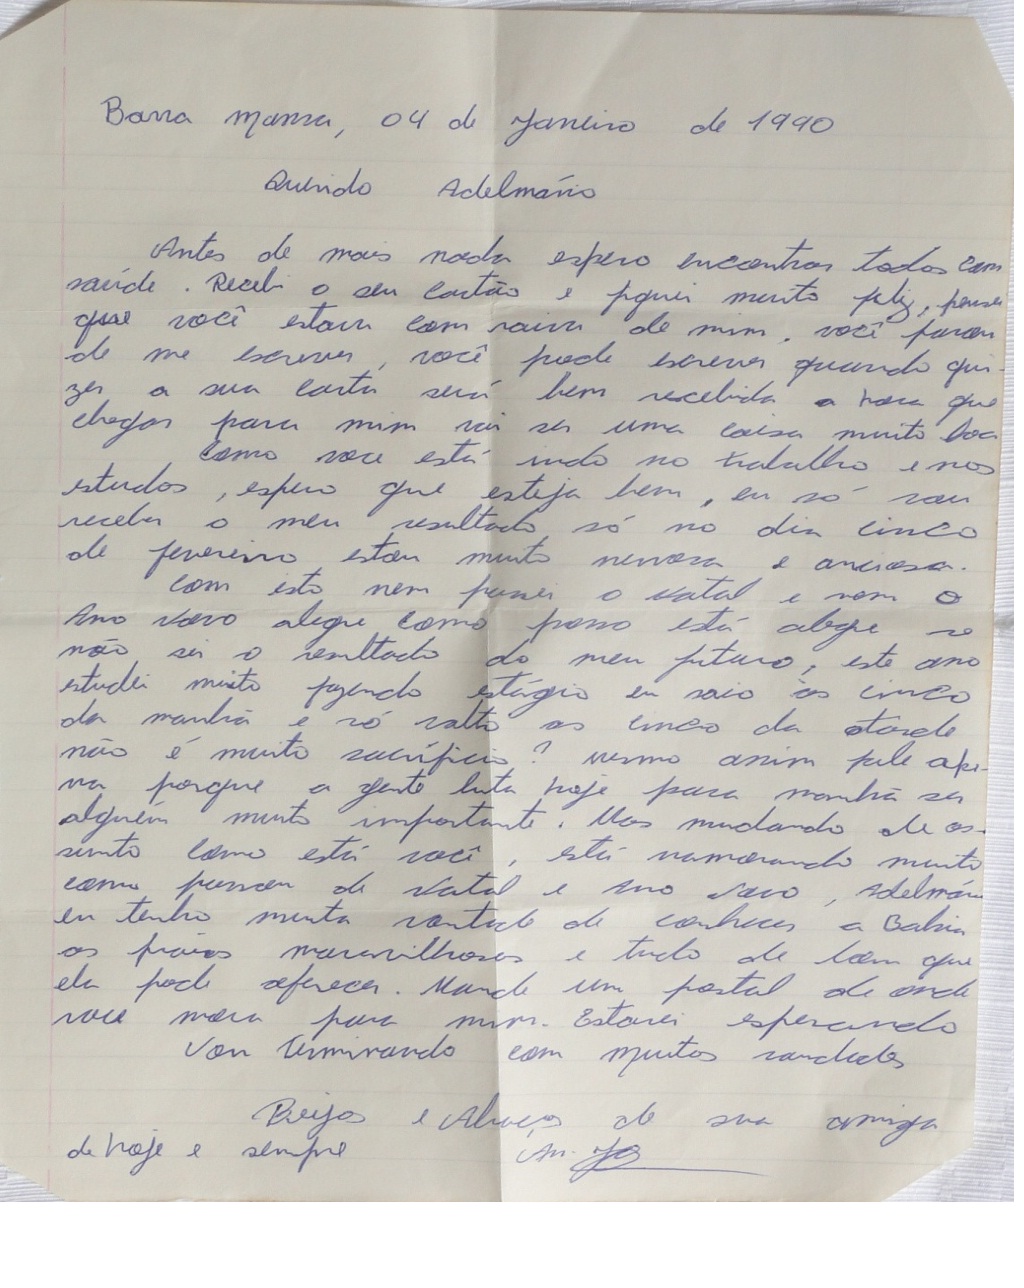 Barra Mansa, 04 de Janeiro de 1990
Querido Adelmário
Antes de mais nada espero encontrar todos com
saúde. Recebi o seu cartão e fiquei muito feliz, pensei
que você estava com raiva de mim, você parou
de me escrever, você pode escrever quando qui-
zer a sua carta será bem recebida a hora que
chegar para mim vai ser uma coisa muito boa
Como voce está indo no trabalho e nos
estudos, espero que esteja bem, eu só vou
receber o meu resultado só no dia cinco
de fevereiro estou muito nervosa e anciosa.
Com isto nem passei o Natal e nem o
Ano Novo alegre como posso está alegre se
não sei o resultado do meu futuro, este ano
estudei muito fazendo estágio eu saio às cinco
da manhã e só volto as cinco da tarde
não é muito sacrifício? Mesmo assim vale ape-
na porque a gente luta hoje para manhã ser
alguém muito importante. Mas mudando de as-
sunto como está você, está namorando muito
como passou de Natal e Ano Novo, Adelmário
eu tenho muita vontade de conhecer a Bahia
as praias maravilhosas e tudo de bom que
ela pode oferecer. Mande um postal de onde
voce mora para mim. Estarei esperando
Vou terminando com muitas saudades
Beijos e Abraços de sua amiga
de hoje e sempre